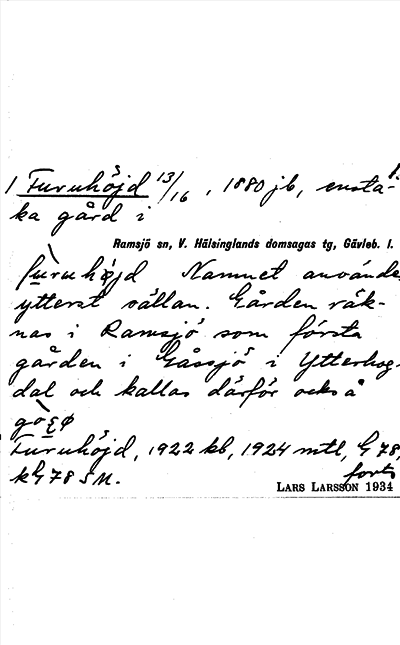 1 Furuhöjd 13/16, 1880 jb, ensta-
ka gård i
Ramsjö sn, V. Hälsinglands domsagas tg, Gävleb. l.
fu̲ruhøjd Namnet användes
ytterst sällan. Gården räk-
nas i Ramsjö som första
gården i Gåssjö i Ytterhog-
dal och kallas därför också
Furuhöjd, 1922 kb, 1924 mtl, G 78,
kG 78 SM. forts
LARS LARSSON 1934